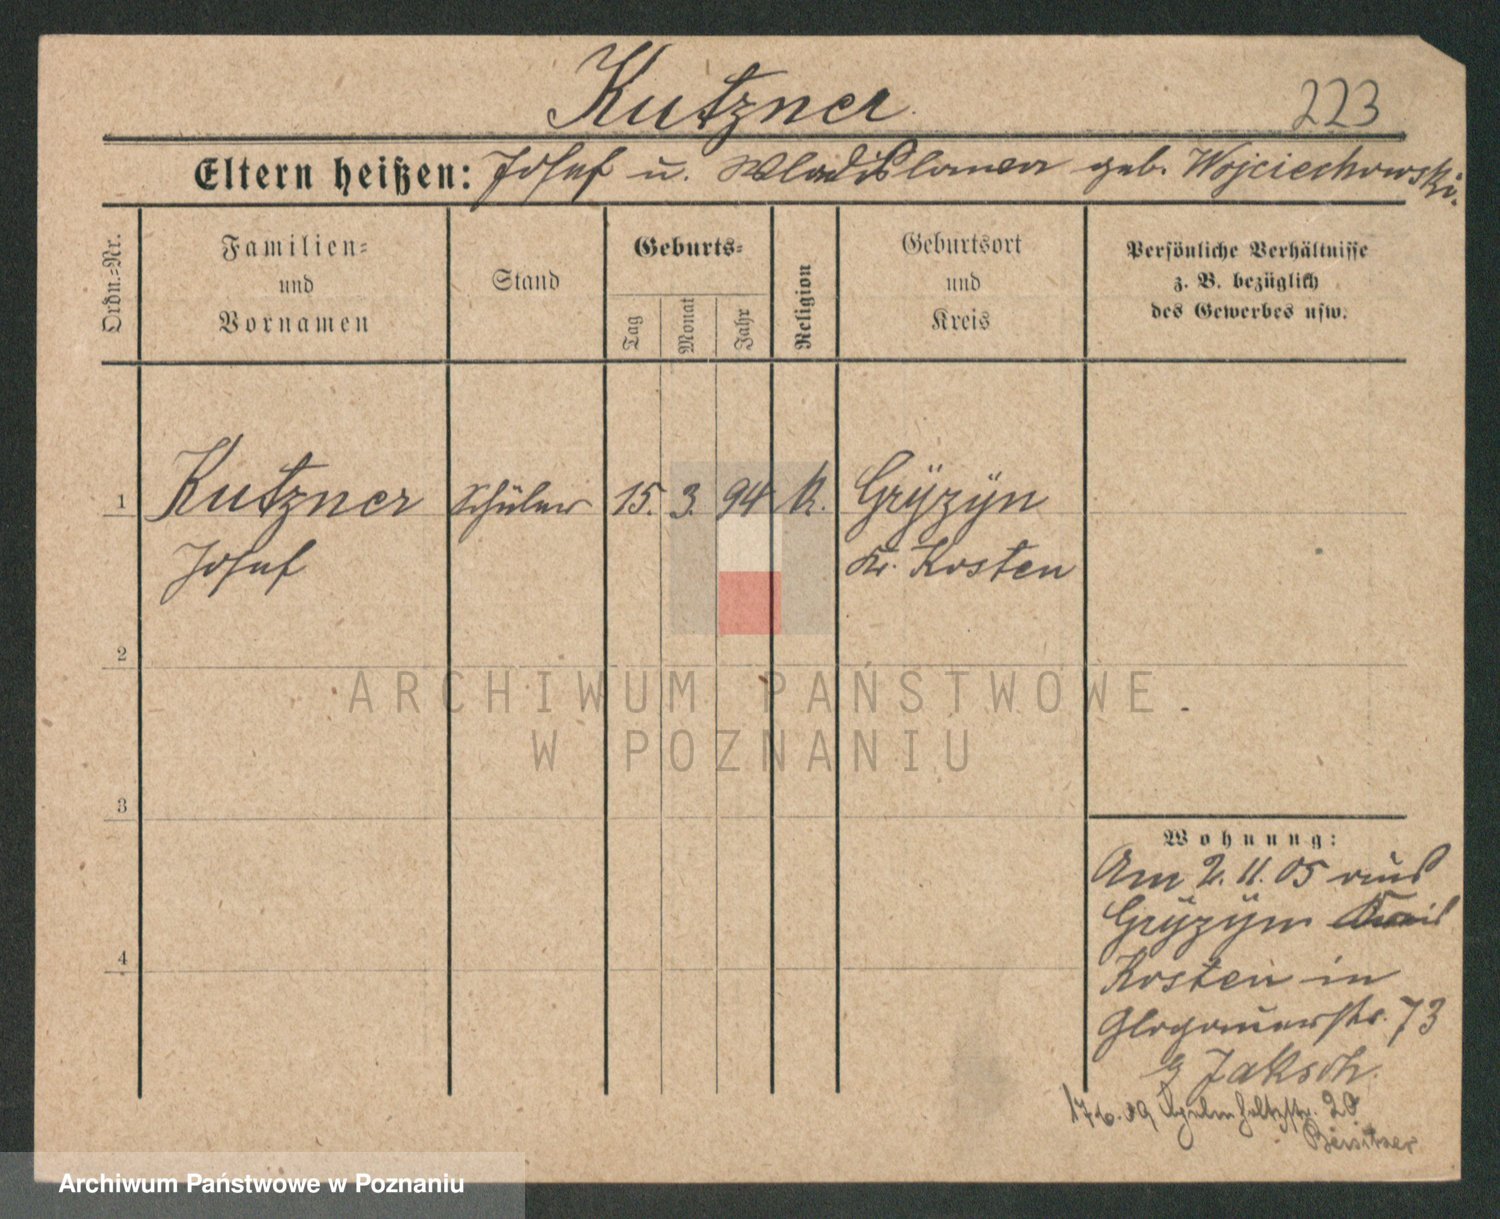 Kutzner
223
Eltern heißen: Josef u. Wladislawa geb. Wojciechowski.
Ordn.=Nr.
Familien=
und
Vornamen
Stand
Geburts=
Tag
Monat
Jahr
Religion
Geburtsort
und
Kreis
Persönliche Verhältnisse
z. B. bezüglich
des Gewerbes usw.
1
Kutzner Schüler 15. 3. 94 K. Gryzyn
Josef Kr. Kosten
2
ARCHIWUM PAŃSTWOWE
W POZNANIU
3
Wohnung:
Am 2. 11. 05 aus
Gryzyn Kreis
4
Kosten in
Glogauerstr. 73
Jaksch.
17 6. 09 20
Archiwum Państwowe w Poznaniu